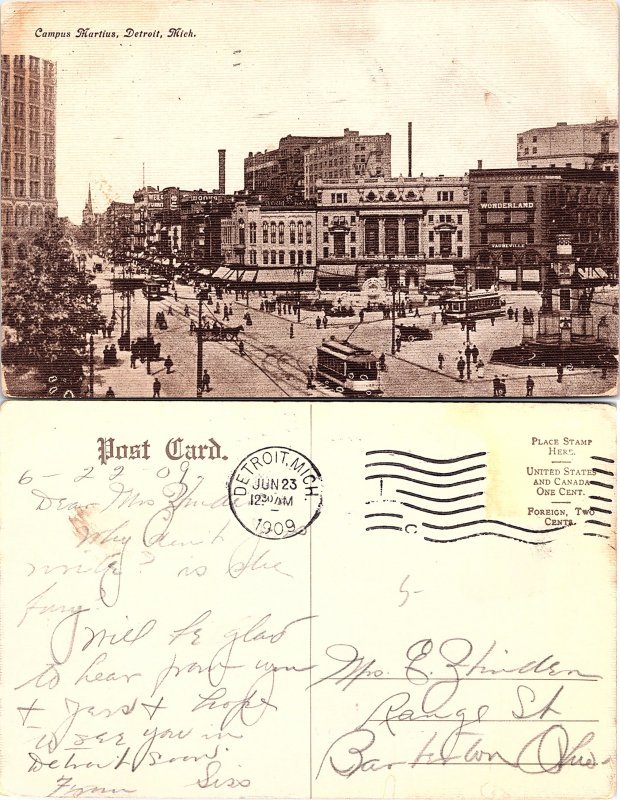 Campus Martius, Detroit, Mich.
WONDERLAND
VAUDEVILLE
Post Card.
DETROIT, MICH.
JUN 23
12 30 AM
1909
PLACE STAMP
HERE.
UNITED STATES
AND CANADA
ONE CENT.
FOREIGN, TWO
CENTS.
6-22 09
Dear Mrs
Why don't
write? is she
Will be glad
to hear from you
+ hope
to see you in
Detroit soon.
From Siss
Mrs. E.
Range St
Barberton Ohio